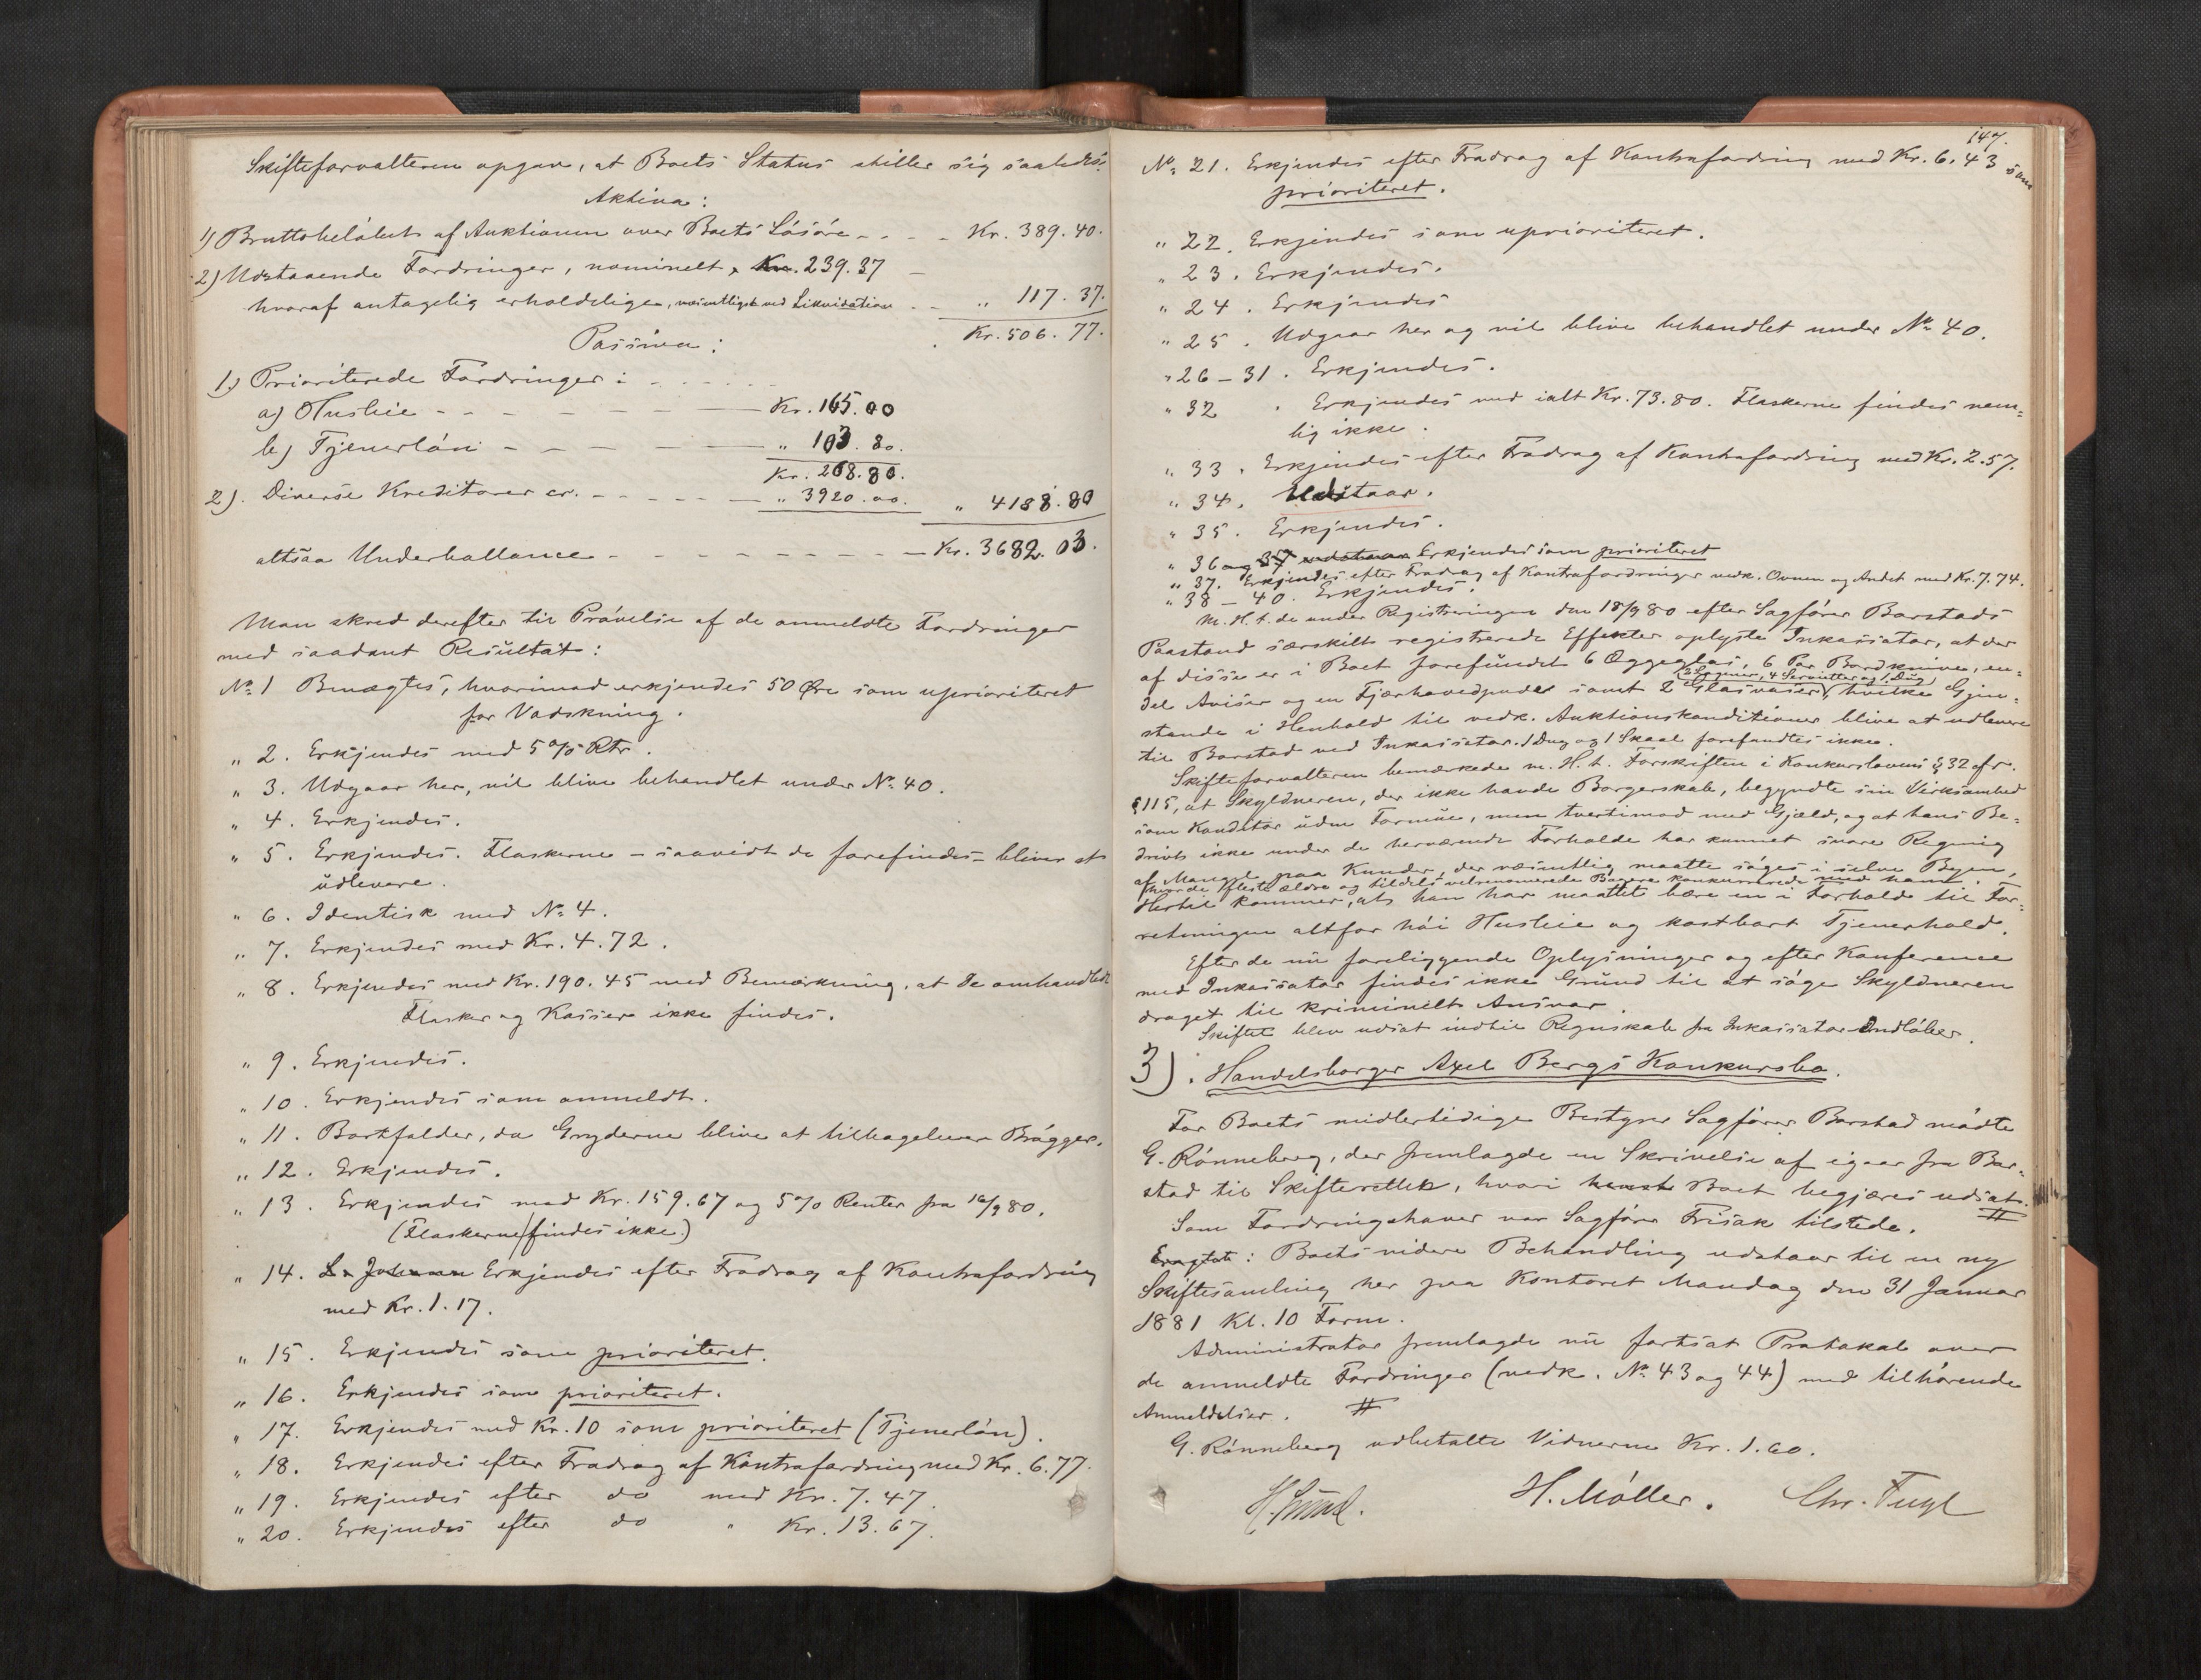 Skifteforvalteren opgav, at Boets Status stiller sig saaledes:
Aktiva:
1) Bruttobeløbet af Auktionen over Boets Løsøre - - - - Kr. 389.40.
2) Udstaaende Fordringer, nominelt, Kr. 239.37 -
hvoraf antagelig erholdelige, væsentligst ved Likvidation - - " 117.37.
Kr. 506.77.
Passiva:
1) Prioriterede Fordringer: - - - - - -
a) Husleie - - - - - - Kr. 165.00
b) Tjenerløn - - - - - " 103.80.
Kr. 268.80.
2). Diverse Kreditorer cr. - - - - - " 3920.00. " 4188.80
altsaa Underballance - - - - - - - - - Kr. 3682.03.
Man skred derefter til Prøvelse af de anmeldte Fordringer
med saadant Resultat:
No. 1 Benægtes, hvorimod erkjendes 50 Øre som uprioriteret
for Vadskning.
" 2. Erkjendes med 5% Rtr.
" 3. Udgaar her, vil blive behandlet under No. 40.
" 4. Erkjendes.
" 5. Erkjendes. Flaskerne - saavidt de forefindes - bliver at
udlevere.
" 6. Identisk med No. 4.
" 7. Erkjendes med Kr. 4.72.
" 8. Erkjendes med Kr. 190.45 med Bemærkning, at de omhandlede
Flasker og Kasser ikke findes.
" 9. Erkjendes.
" 10. Erkjendes som anmeldt.
" 11. Bortfalder, da Gryderne blive at tilbagelevere Brøgger.
" 12. Erkjendes.
" 13. Erkjendes med Kr. 159.67 og 5% Renter fra 16/9 80.
(Flaskerne findes ikke.)
" 14. Erkjendes efter Fradrag af Kontrafordring
med Kr. 1.17.
" 15. Erkjendes som prioriteret.
" 16. Erkjendes som prioriteret.
" 17. Erkjendes med Kr. 10 som prioriteret (Tjenerløn).
" 18. Erkjendes efter Fradrag af Kontrafordring med Kr. 6.77.
" 19. Erkjendes efter do med Kr. 7.47.
" 20. Erkjendes efter do " Kr. 13.67.
147.
No. 21. Erkjendes efter Fradrag af Kontrafordring med Kr. 6.43 som
prioriteret.
" 22. Erkjendes som uprioriteret.
" 23. Erkjendes.
" 24. Erkjendes
" 25. Udgaar her og vil blive behandlet under No. 40.
" 26-31. Erkjendes.
" 32. Erkjendes med ialt Kr. 73.80. Flaskerne findes nem=
lig ikke.
" 33. Erkjendes efter Fradrag af Kontrafordring med Kr. 2.57.
" 34. Udstaar.
" 35. Erkjendes.
" 36 og 37 udstaar Erkjendes som prioriteret
" 37. Erkjendes efter Fradrag af Kontrafordringer vedk. Ovnen og Andet med Kr. 7.74.
" 38-40. Erkjendes.
M. H. t. de under Registreringen den 18/9 80 efter Sagfører Barstads
Paastand særskilt registrerede Effekter oplyste Inkassator, at der
af disse er i Boet forefundet 6 Æggeglas, 6 Par Bordknive, en=
4 Servietter og 1 Dug
del Aviser og en Fjærhovedpude samt 2 Glasvaser, hvilke Gjen=
stande i Henhold til vedk. Auktionskonditioner blive at udlevere
til Barstad ved Inkassator. 1 Dug og 1 Skaal forefandtes ikke.
Skifteforvalteren bemærkede m. H. t. Forskriften i Konkurslovens § 32 cfr.
§ 115, at Skyldneren, der ikke havde Borgerskab, begyndte sin Virksomhed
som Konditor uden Formue, men tvertimod med Gjæld, og at hans Be=
drivt ikke under de herværende Forholde har kunnet svare Regning
af Mangel paa Kunder, der væsentlig maatte søges i selve Byen,
hvor de fleste ældre og tildels velrenomerede Bagere konkurrerede med ham.
Hertil kommer, at han har maattet bære en i Forhold til For=
retningen altfor høi Husleie og kostbart Tjenerhold.
Efter de nu foreliggende Oplysninger og efter Konference
med Inkassator findes ikke Grund til at søge Skyldneren
draget til kriminelt Ansvar.
Skiftet blev udsat indtil Regnskab fra Inkassator indløber.
3). Handelsborger Axel Bergs Konkursbo.
For Boets midlertidige Bestyrer Sagfører Barstad mødte
G. Rønneberg, der fremlagde en Skrivelse af igaar fra Bar=
stad til Skifteretten, hvori Boet begjæres udsat. #
Som Fordringshaver var Sagfører Frisak tilstede.
Eragtet: Boets videre Behandling udstaar til en ny
Skiftesamling her paa Kontoret Mandag den 31 Januar
1881 Kl. 10 Form.
Administrator fremlagde nu fortsat Protokol over
de anmeldte Fordringer (vedk. No. 43 og 44) med tilhørende
Anmeldelser. #
G. Rønneberg udbetalte Vidnerne Kr. 1.60.
H. Møller. Chr. Fugl